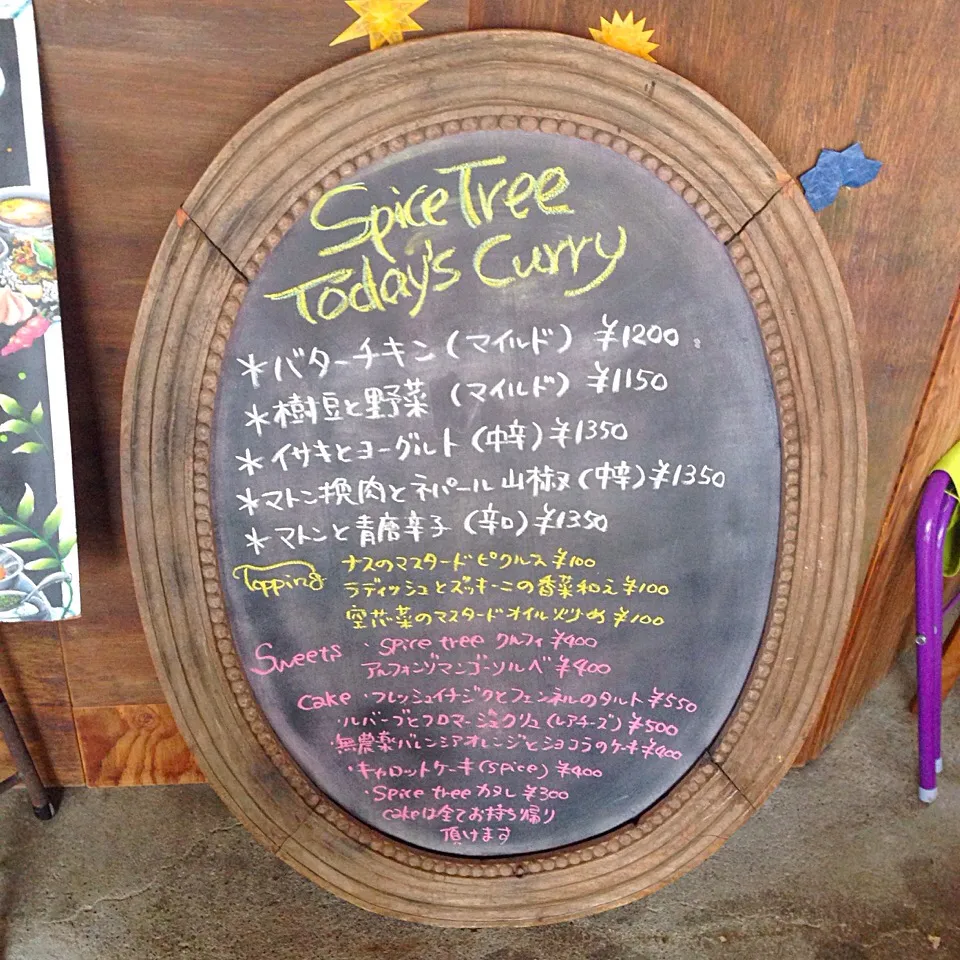 Spice Tree
Today's Curry
*バターチキン(マイルド) ¥1200
*樹豆と野菜(マイルド) ¥1150
*イサキとヨーグルト(中辛)¥1350
*マトン挽肉とネパール山椒(中辛)¥1350
*マトンと青唐辛子(辛口)¥1350
Topping ナスのマスタードピクルス ¥100
ラディッシュとズッキーニの香菜和え ¥100
空芯菜のマスタードオイル炒め ¥100
Sweets ・Spice tree クルフィ ¥400
アルフォンゾマンゴーソルベ ¥400
Cake ・フレッシュイチジクとフェンネルのタルト ¥550
・ルバーブとフロマージュクリュ(レアチーズ) ¥500
・無農薬バレンシアオレンジとショコラのケーキ ¥400
・キャロットケーキ(spice) ¥400
・Spice tree カヌレ ¥300
cakeは全てお持ち帰り
頂けます